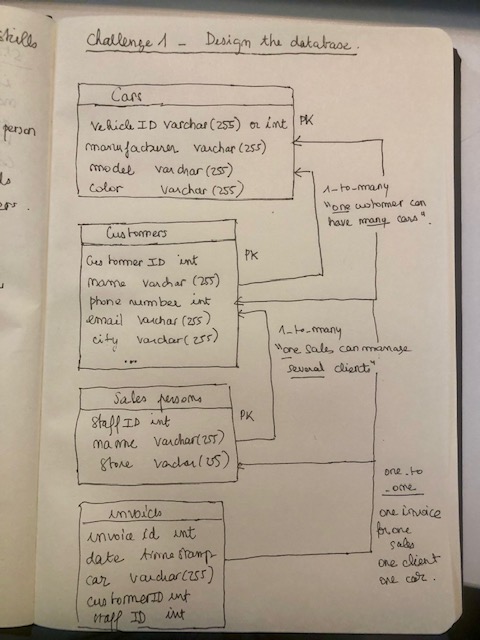 skills
person
Challenge 1 - Design the database.
Cars
vehicle ID varchar(255) or int PK
manufacturer varchar(255)
model varchar(255)
color varchar(255)
1-to-many
"one customer can
have many cars".
Customers
Customer ID int PK
name varchar (255)
phone number int
email varchar(255)
city varchar(255)
...
1-to-many
"one sales can manage
several clients".
Sales persons
Staff ID int PK
name varchar(255)
store varchar(255)
one-to
-one
one invoice
for one
sales
one client
one car.
invoices
invoice id int
date timestamp
car varchar(255)
customerID int
staff ID int